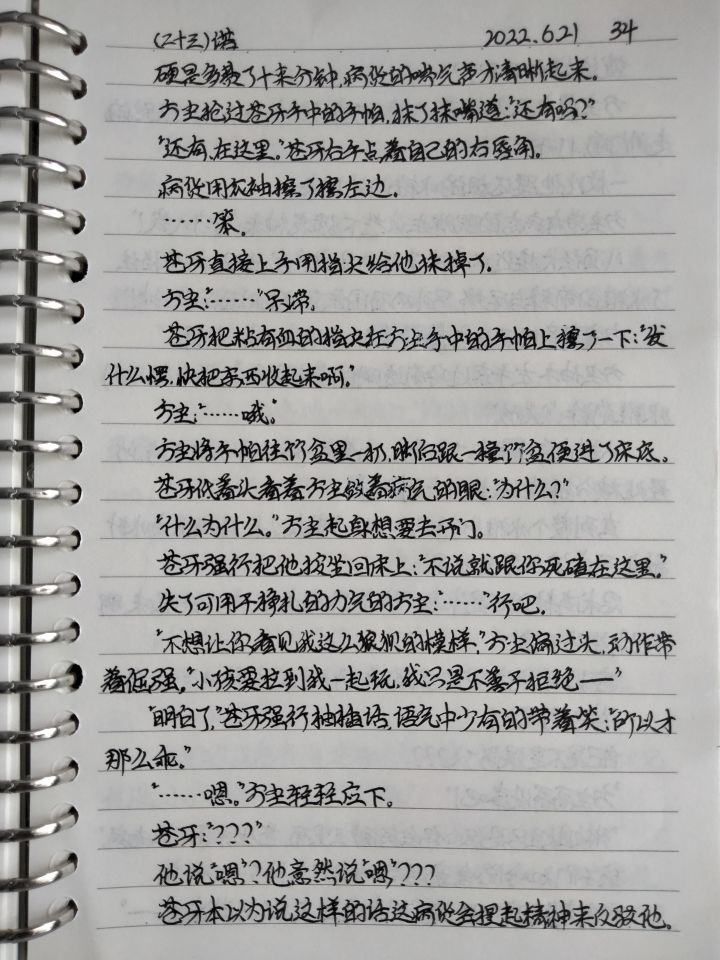 (二十三)诺 2022.6.21 34
硬是多费了十来分钟,病货的喘气声才清晰起来。
方尘抢过苍牙手中的手帕,抹了抹嘴道:“还有吗?”
“还有,在这里。”苍牙右手点着自己的右唇角。
病货用衣袖擦了擦左边。
……笨。
苍牙直接上手用指尖给他抹掉了。
方尘:“……”呆滞。
苍牙把粘有血的指尖在方尘手中的手帕上擦了一下:“发
什么愣,快把东西收起来啊。”
方尘:“……哦。”
方尘将手帕往竹盆里一扔,脚后跟一撞竹盆便进了床底。
苍牙低着头看着方尘敛着病气的眼:“为什么?”
“什么为什么。”方尘起身想要去开门。
苍牙强行把他按坐回床上:“不说就跟你死磕在这里。”
失了可用于挣扎的力气的方尘:“……”行吧。
“不想让你看见我这么狼狈的模样,”方尘偏过头,动作带
着倔强。“小孩要拉到我一起玩,我只是不善于拒绝——”
“明白了,”苍牙强行抽插话,语气中少有的带着笑:“所以才
那么乖。”
“……嗯。”方尘轻轻应下。
苍牙:“???”
他说“嗯”?他竟然说“嗯”???
苍牙本以为说这样的话这病货会提起精神来反驳他。